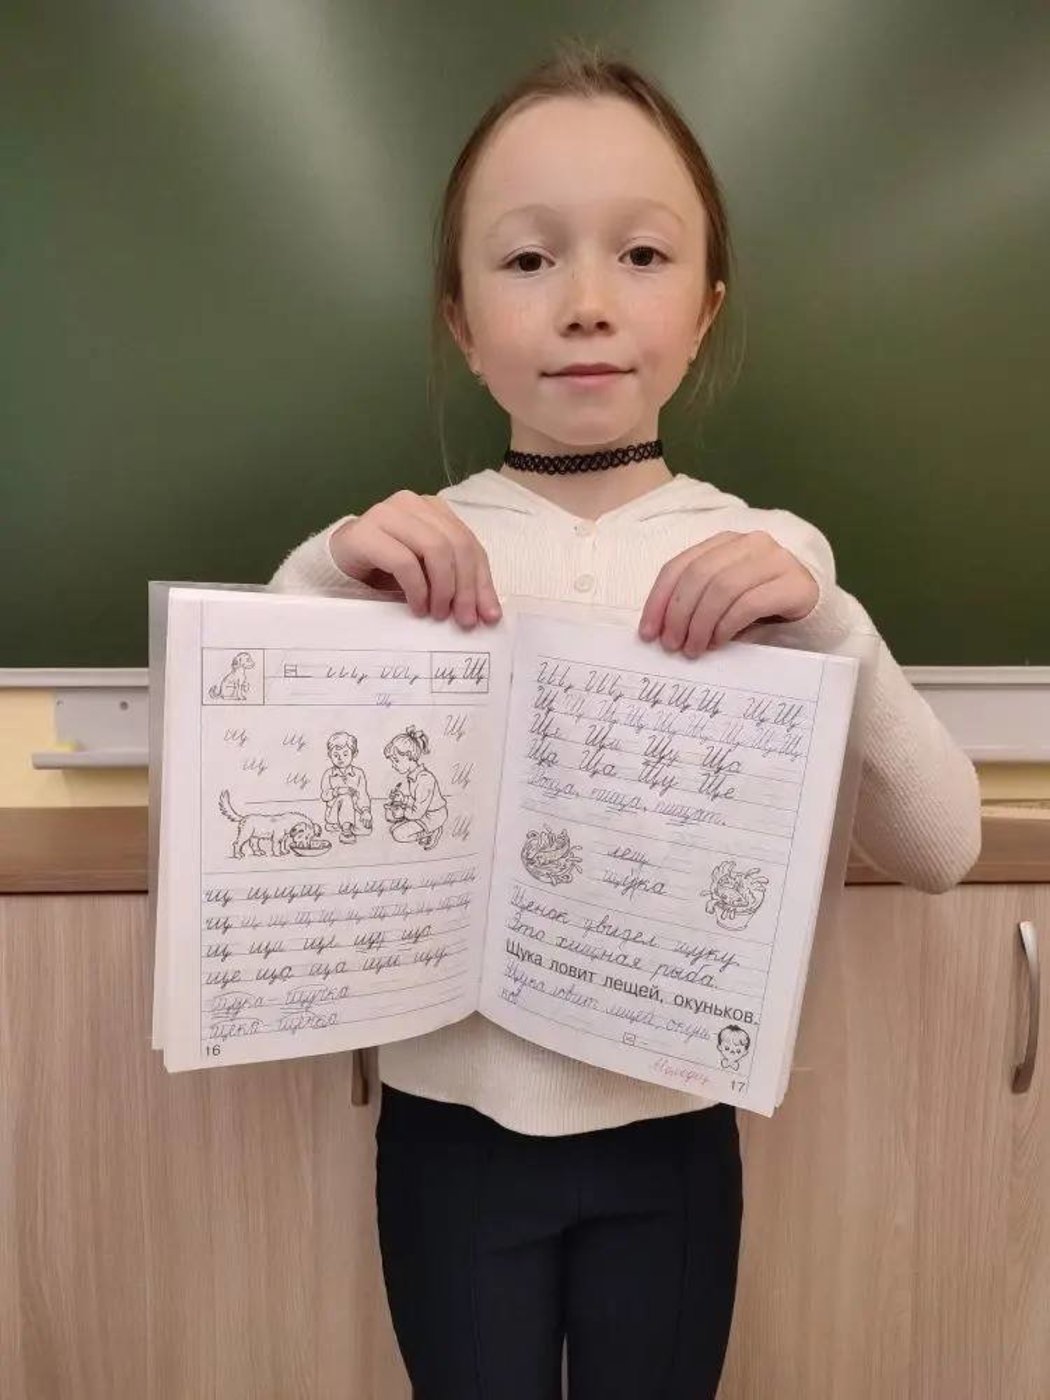 щ Щ
Щ
щ щ Щ
щ
щ Щ
Щ
щ щщщ щщщ щщщ
щ щ щ щ щ щ щ щ щ
щ ща ще щу ща
ще ща ща щи щу
Щука - Щучка
Щека - Щёчка
16
Щ Щ Щ Щ Щ
Щ Щ Щ Щ Щ Щ Щ Щ
Ще Щи Щу Ща
Ща Ща Щу Ще
роща, пища, пищат.
лещ
щука
Щенок увидел щуку.
Это хищная рыба.
Щука ловит лещей, окуньков.
Щука ловит лещей, окунь
ков.
Молодец
17